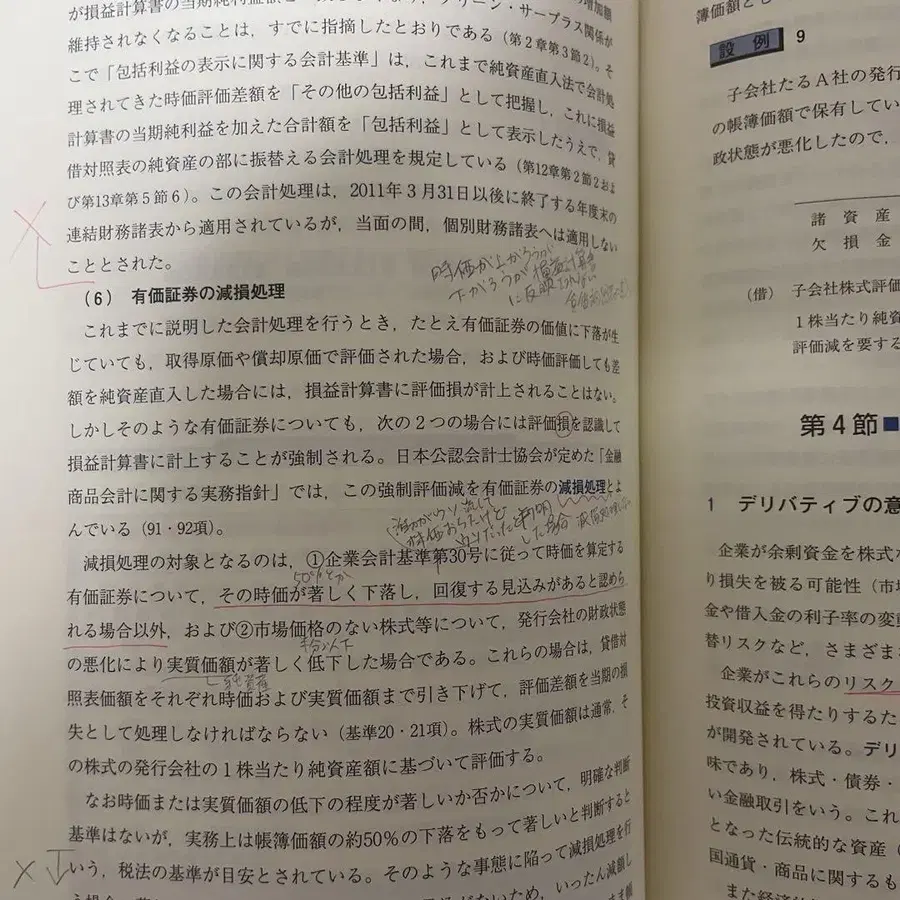 が損益計算書の当期純利益額と
維持されなくなることは，すでに指摘したとおりである（第２章第３節２）。そ
こで「包括利益の表示に関する会計基準」は，これまで純資産直入法で会計処
理されてきた時価評価差額を「その他の包括利益」として把握し，これに損益
計算書の当期純利益を加えた合計額を「包括利益」として表示したうえで，貸
借対照表の純資産の部に振替える会計処理を規定している（第12章第２節２およ
び第13章第５節６）。この会計処理は，2011年３月31日以後に終了する年度末の
連結財務諸表から適用されているが，当面の間，個別財務諸表へは適用しない
こととされた。
時価が上がろうが
下がろうが損益計算書
に反映されない
（6） 有価証券の減損処理
これまでに説明した会計処理を行うとき，たとえ有価証券の価値に下落が生
じていても，取得原価や償却原価で評価された場合，および時価評価しても差
額を純資産直入した場合には，損益計算書に評価損が計上されることはない。
しかしそのような有価証券についても，次の２つの場合には評価損を認識して
損益計算書に計上することが強制される。日本公認会計士協会が定めた「金融
商品会計に関する実務指針」では，この強制評価減を有価証券の減損処理とよ
んでいる（91・92項）。
減損処理の対象となるのは，①企業会計基準第30号に従って時価を算定する
50%とか
有価証券について，その時価が著しく下落し，回復する見込みがあると認めら
れる場合以外，および②市場価格のない株式等について，発行会社の財政状態
半分以下
の悪化により実質価額が著しく低下した場合である。これらの場合は，貸借対
純資産
照表価額をそれぞれ時価および実質価額まで引き下げて，評価差額を当期の損
失として処理しなければならない（基準20・21項）。株式の実質価額は通常，そ
の株式の発行会社の１株当たり純資産額に基づいて評価する。
なお時価または実質価額の低下の程度が著しいか否かについて，明確な判断
基準はないが，実務上は帳簿価額の約50％の下落をもって著しいと判断すると
いう，税法の基準が目安とされている。そのような事態に陥って減損処理を行
いったん減額し
簿価額と
設例 9
子会社たるＡ社の発行
の帳簿価額で保有してい
政状態が悪化したので，
諸資産
欠損金
（借） 子会社株式評価
１株当たり純資
評価減を要する
第４節
1 デリバティブの意
企業が余剰資金を株式
り損失を被る可能性（市場
金や借入金の利子率の変動
替リスクなど，さまざま
企業がこれらのリスク
投資収益を得たりするた
が開発されている。デリ
味であり，株式・債券・
い金融取引をいう。これ
となった伝統的な資産（
国通貨・商品に関するも
また経済的